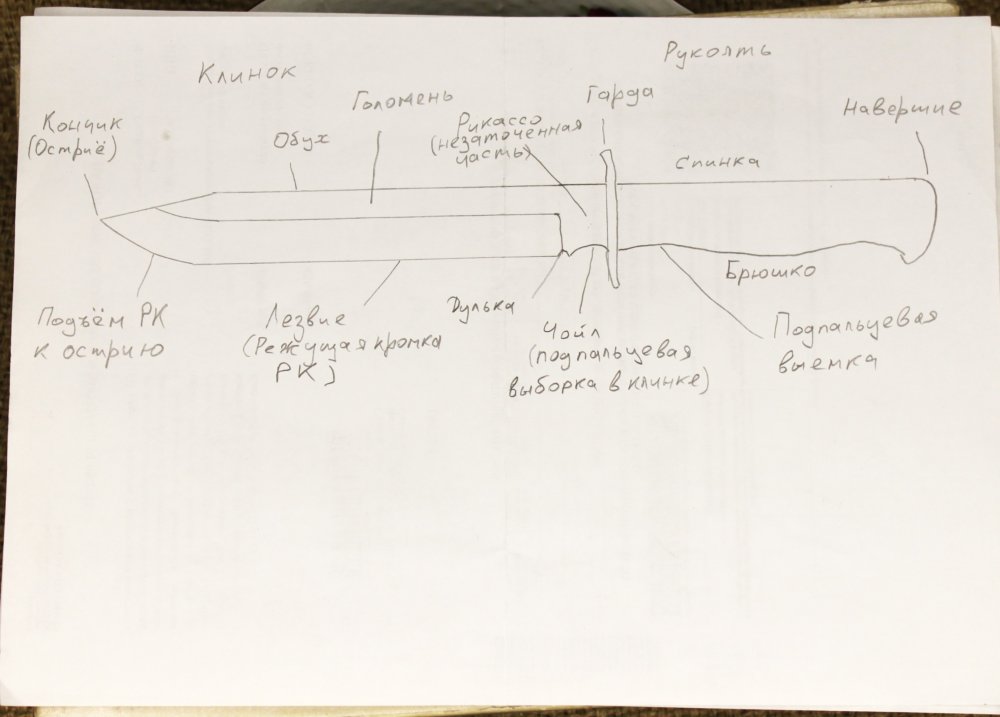 Клинок
Рукоять
Кончик
(Остриё)
Обух
Голомень
Рикассо
(незаточенная
часть)
Гарда
Навершие
Спинка
Брюшко
Подъём РК
к острию
Лезвие
(Режущая кромка
РК)
Дулька
Чойл
(подпальцевая
выборка в клинке)
Подпальцевая
выемка